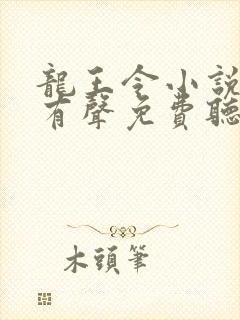 龍王令小說
有聲免費聽
木頭筆